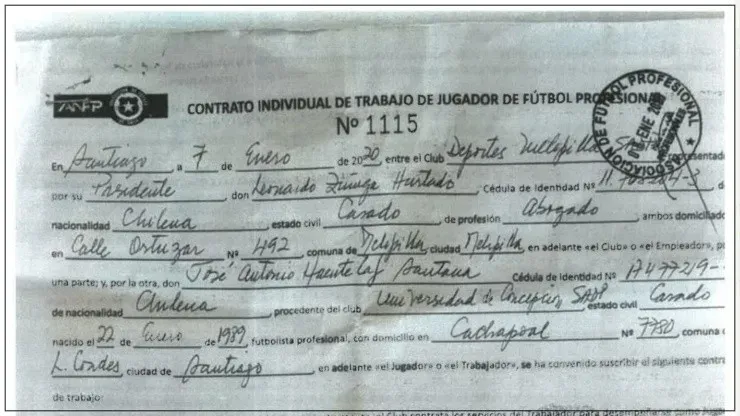 ANFP
CONTRATO INDIVIDUAL DE TRABAJO DE JUGADOR DE FÚTBOL PROFESIONAL
Nº 1115
ASOCIACION DE FUTBOL PROFESIONAL
ENE 20
En Santiago a 7 de Enero de 2020, entre el Club Deportes Melipilla representado
por su Presidente don Leonardo Zúñiga Hurtado Cédula de Identidad Nº 11. d
nacionalidad Chilena estado civil Casado, de profesión Abogado, ambos domiciliado
en Calle Ortuzar Nº 492 comuna de Melipilla, ciudad Melipilla, en adelante «el Club» o «el Empleador», po
una parte; y, por la otra, don José Antonio Santana Cédula de Identidad Nº
de nacionalidad Chilena, procedente del club Universidad de Concepcion SADP estado civil Casado
nacido el 22 de Enero de 1989, futbolista profesional, con domicilio en Cachapoal Nº 7780 comuna d
L. Condes ciudad de Santiago, en adelante «el Jugador» o «el Trabajador», se ha convenido suscribir el siguiente contr
de trabajo:
el Club contrata los servicios del Trabajador para desempeñarse como Jugad